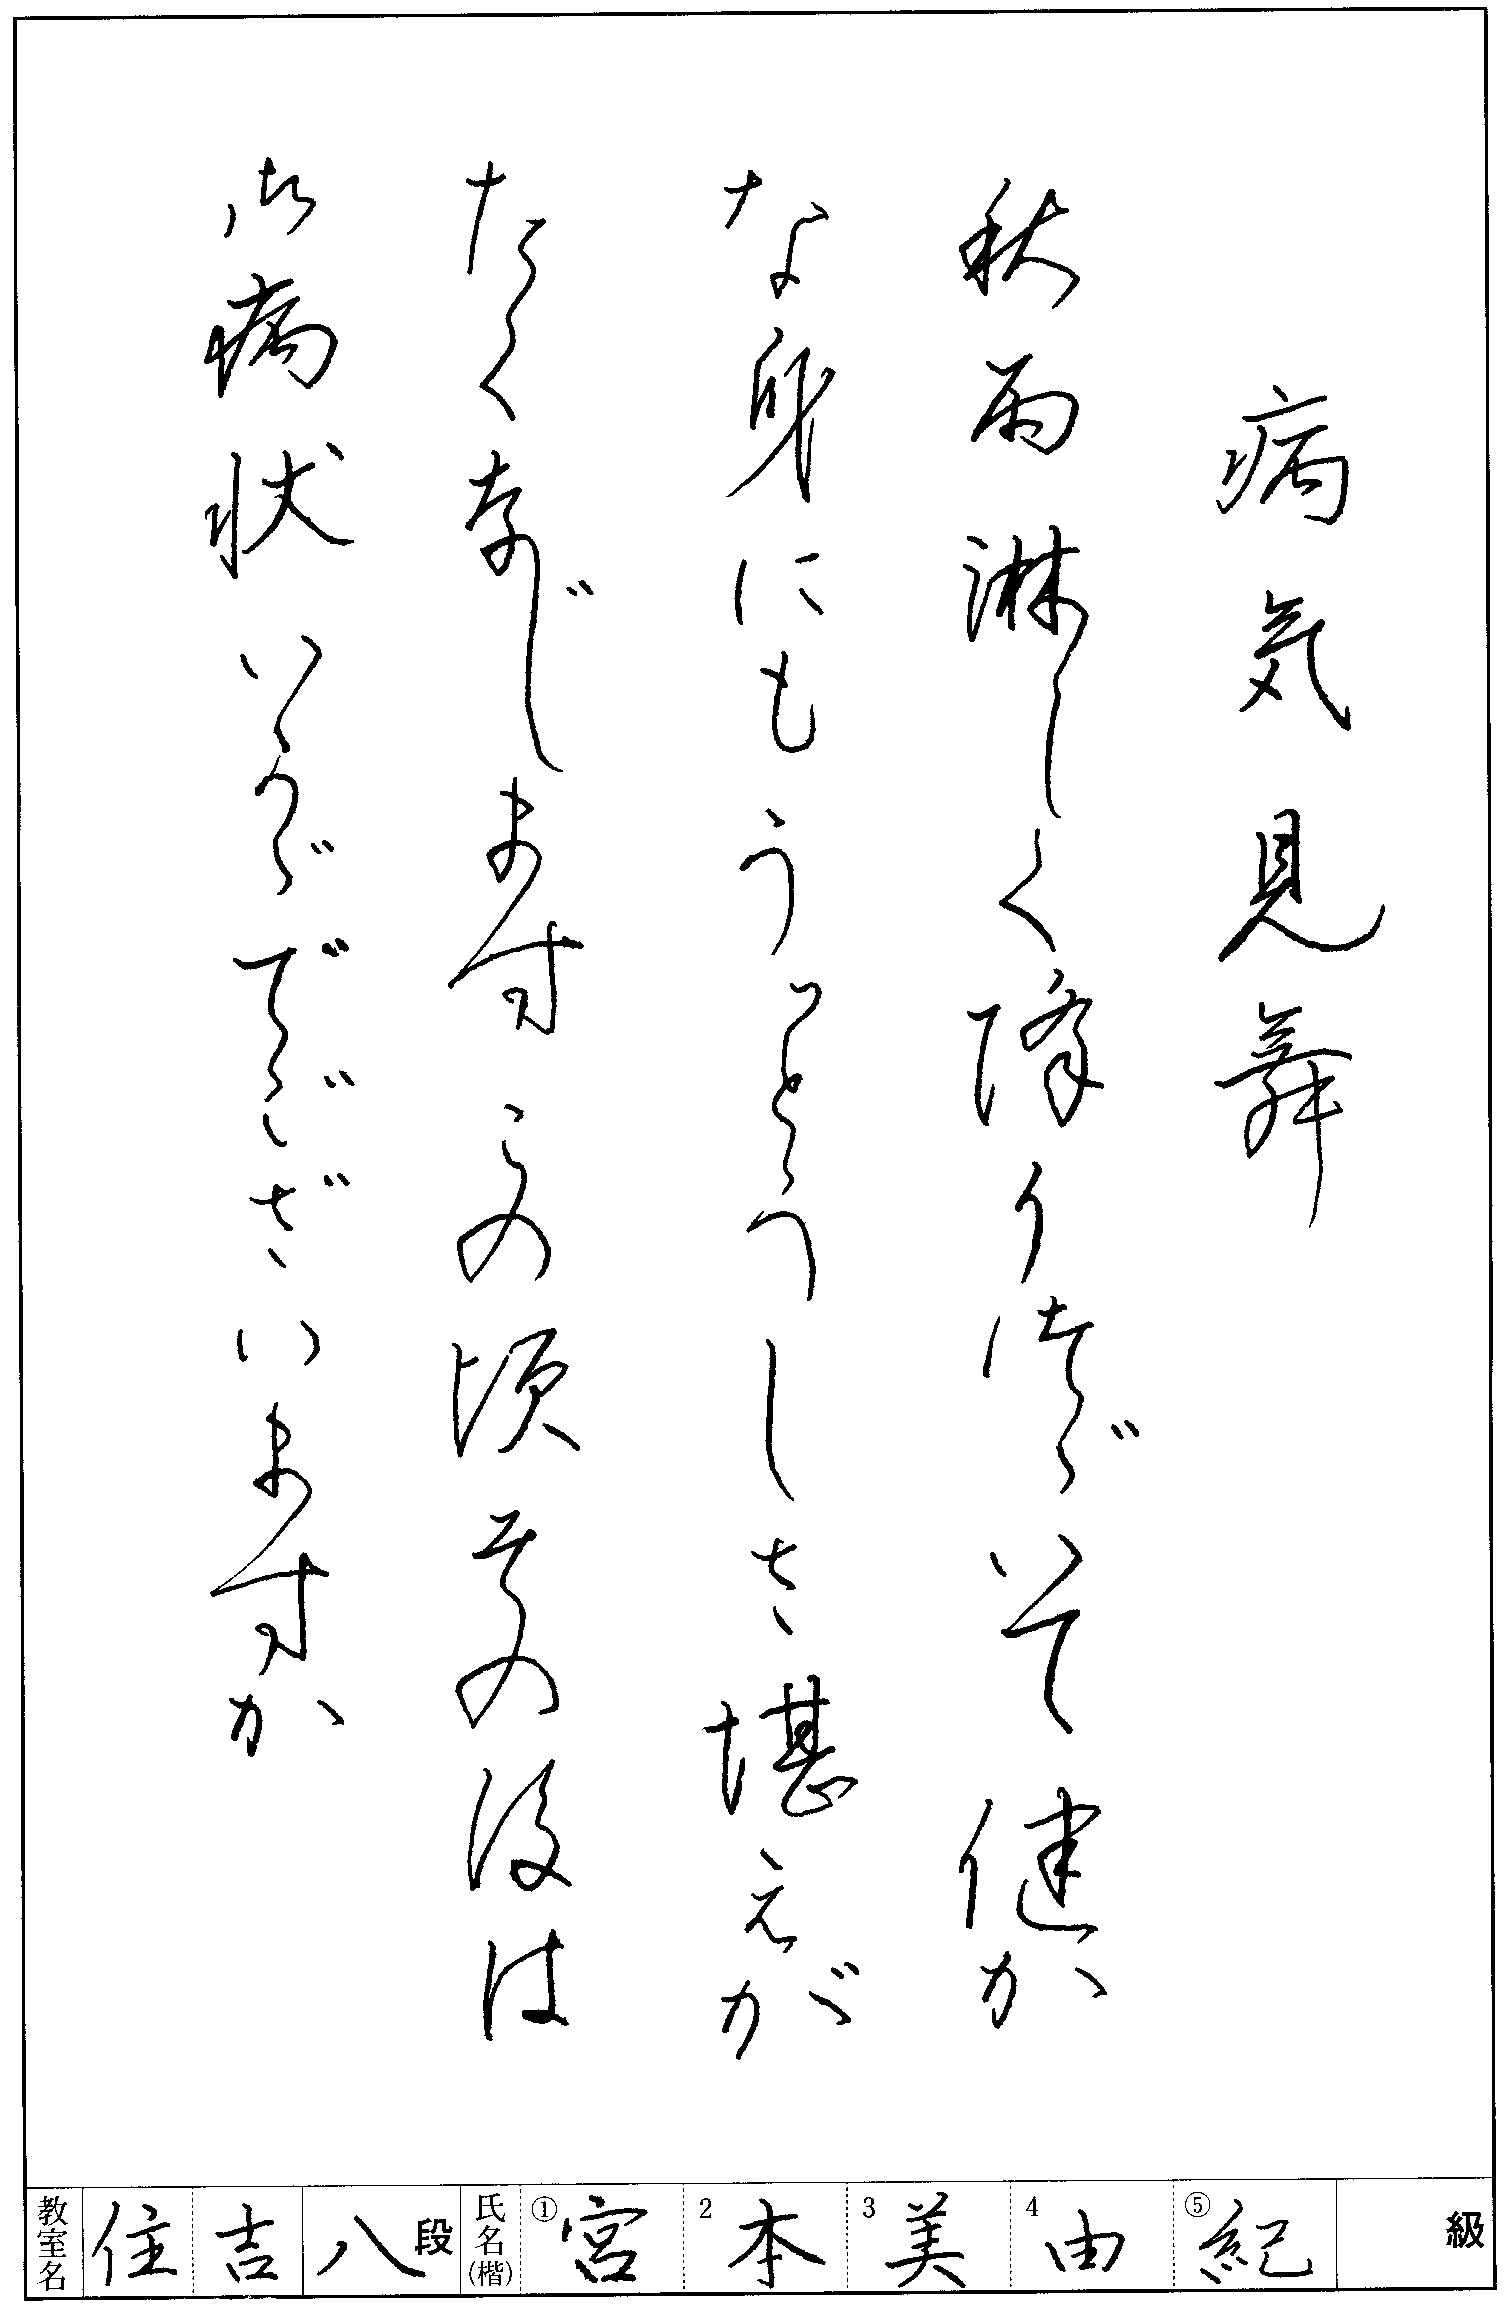 病気見舞
秋雨淋しく降りつづいて健か
な身にもうっとうしさ堪えが
たく存じますこの頃その後は
御病状いかがでございますか
教室名 住吉 八段 氏名(楷) ①宮 2本 3美 4由 ⑤紀 級